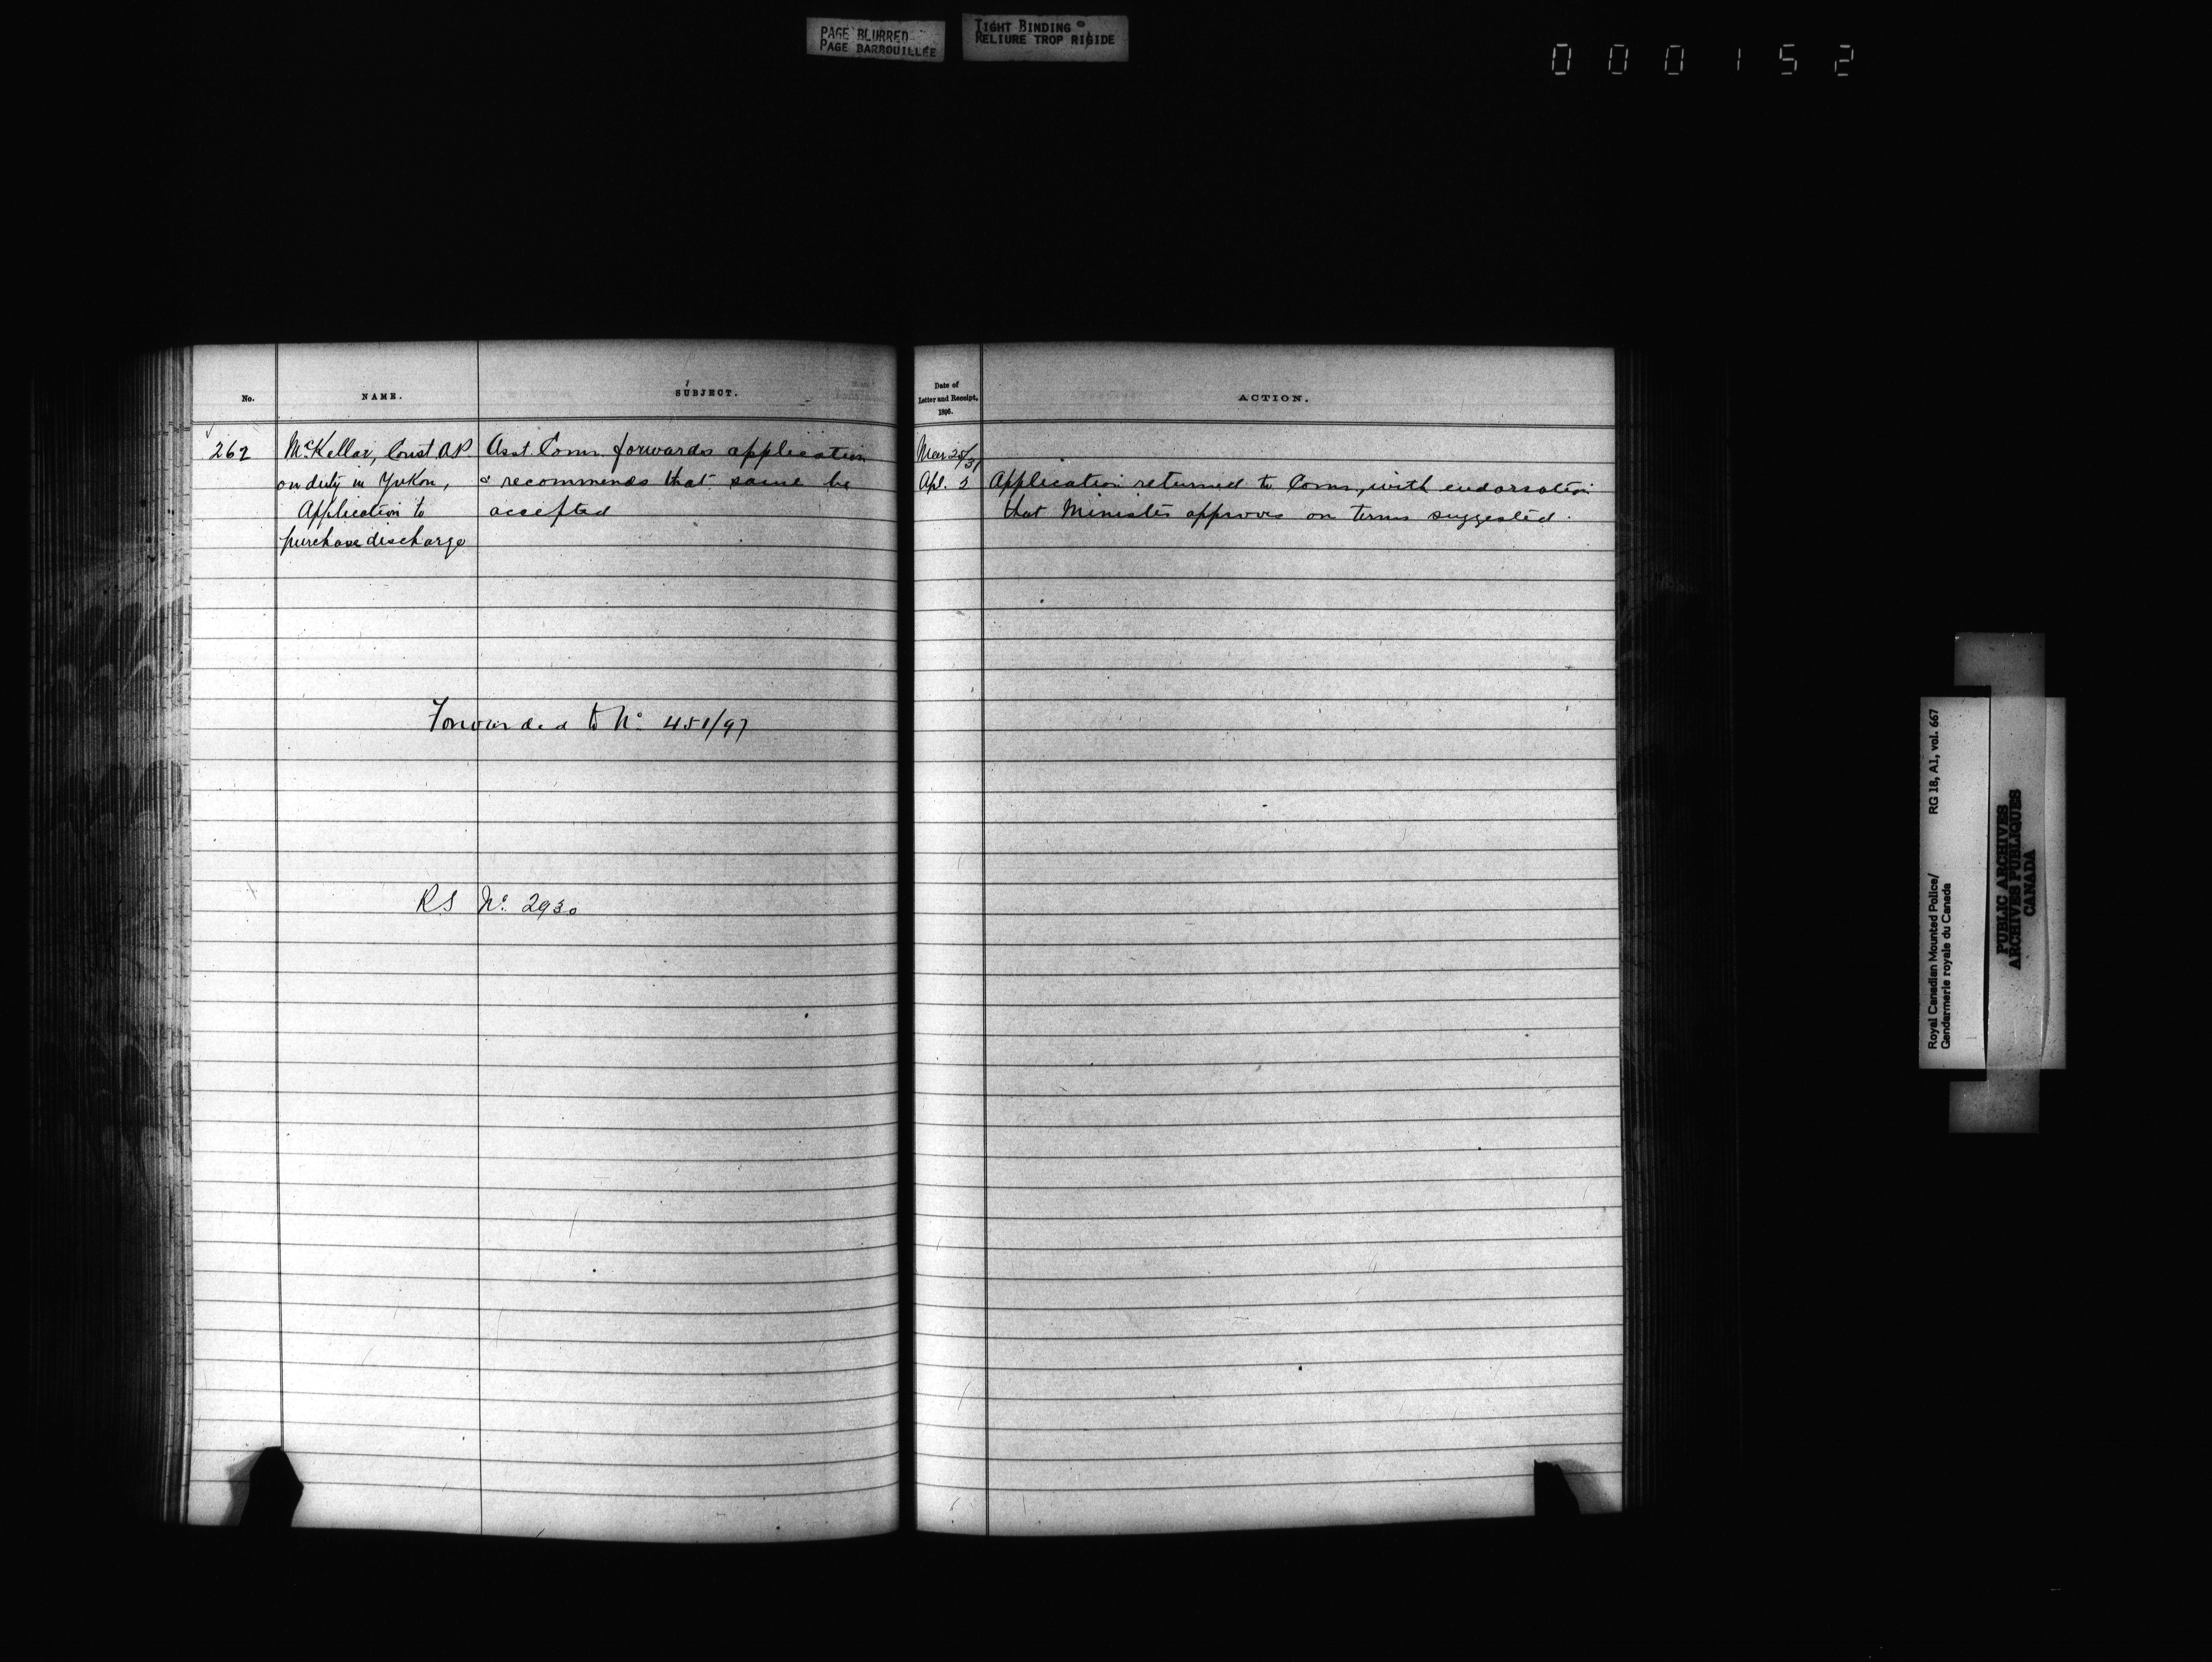 PAGE BLURRED
PAGE BARBOUILLÉE
TIGHT BINDING
RELIURE TROP RIGIDE
000152
No.
NAME.
SUBJECT.
262
McKellar, Const A.P.
on duty in Yukon,
Application to
purchase discharge
Asst Comr. forwards application
& recommends that same be
accepted
Forwarded to No. 451/97
RS No. 2930
Date of
Letter and Receipt,
1896.
ACTION.
Mar 25/31
Apl. 2
Application returned to Comr, with endorsation
that Minister approves on terms suggested.
Royal Canadian Mounted Police/
Gendarmerie royale du Canada
RG 18, A1, vol. 667
PUBLIC ARCHIVES
ARCHIVES PUBLIQUES
CANADA